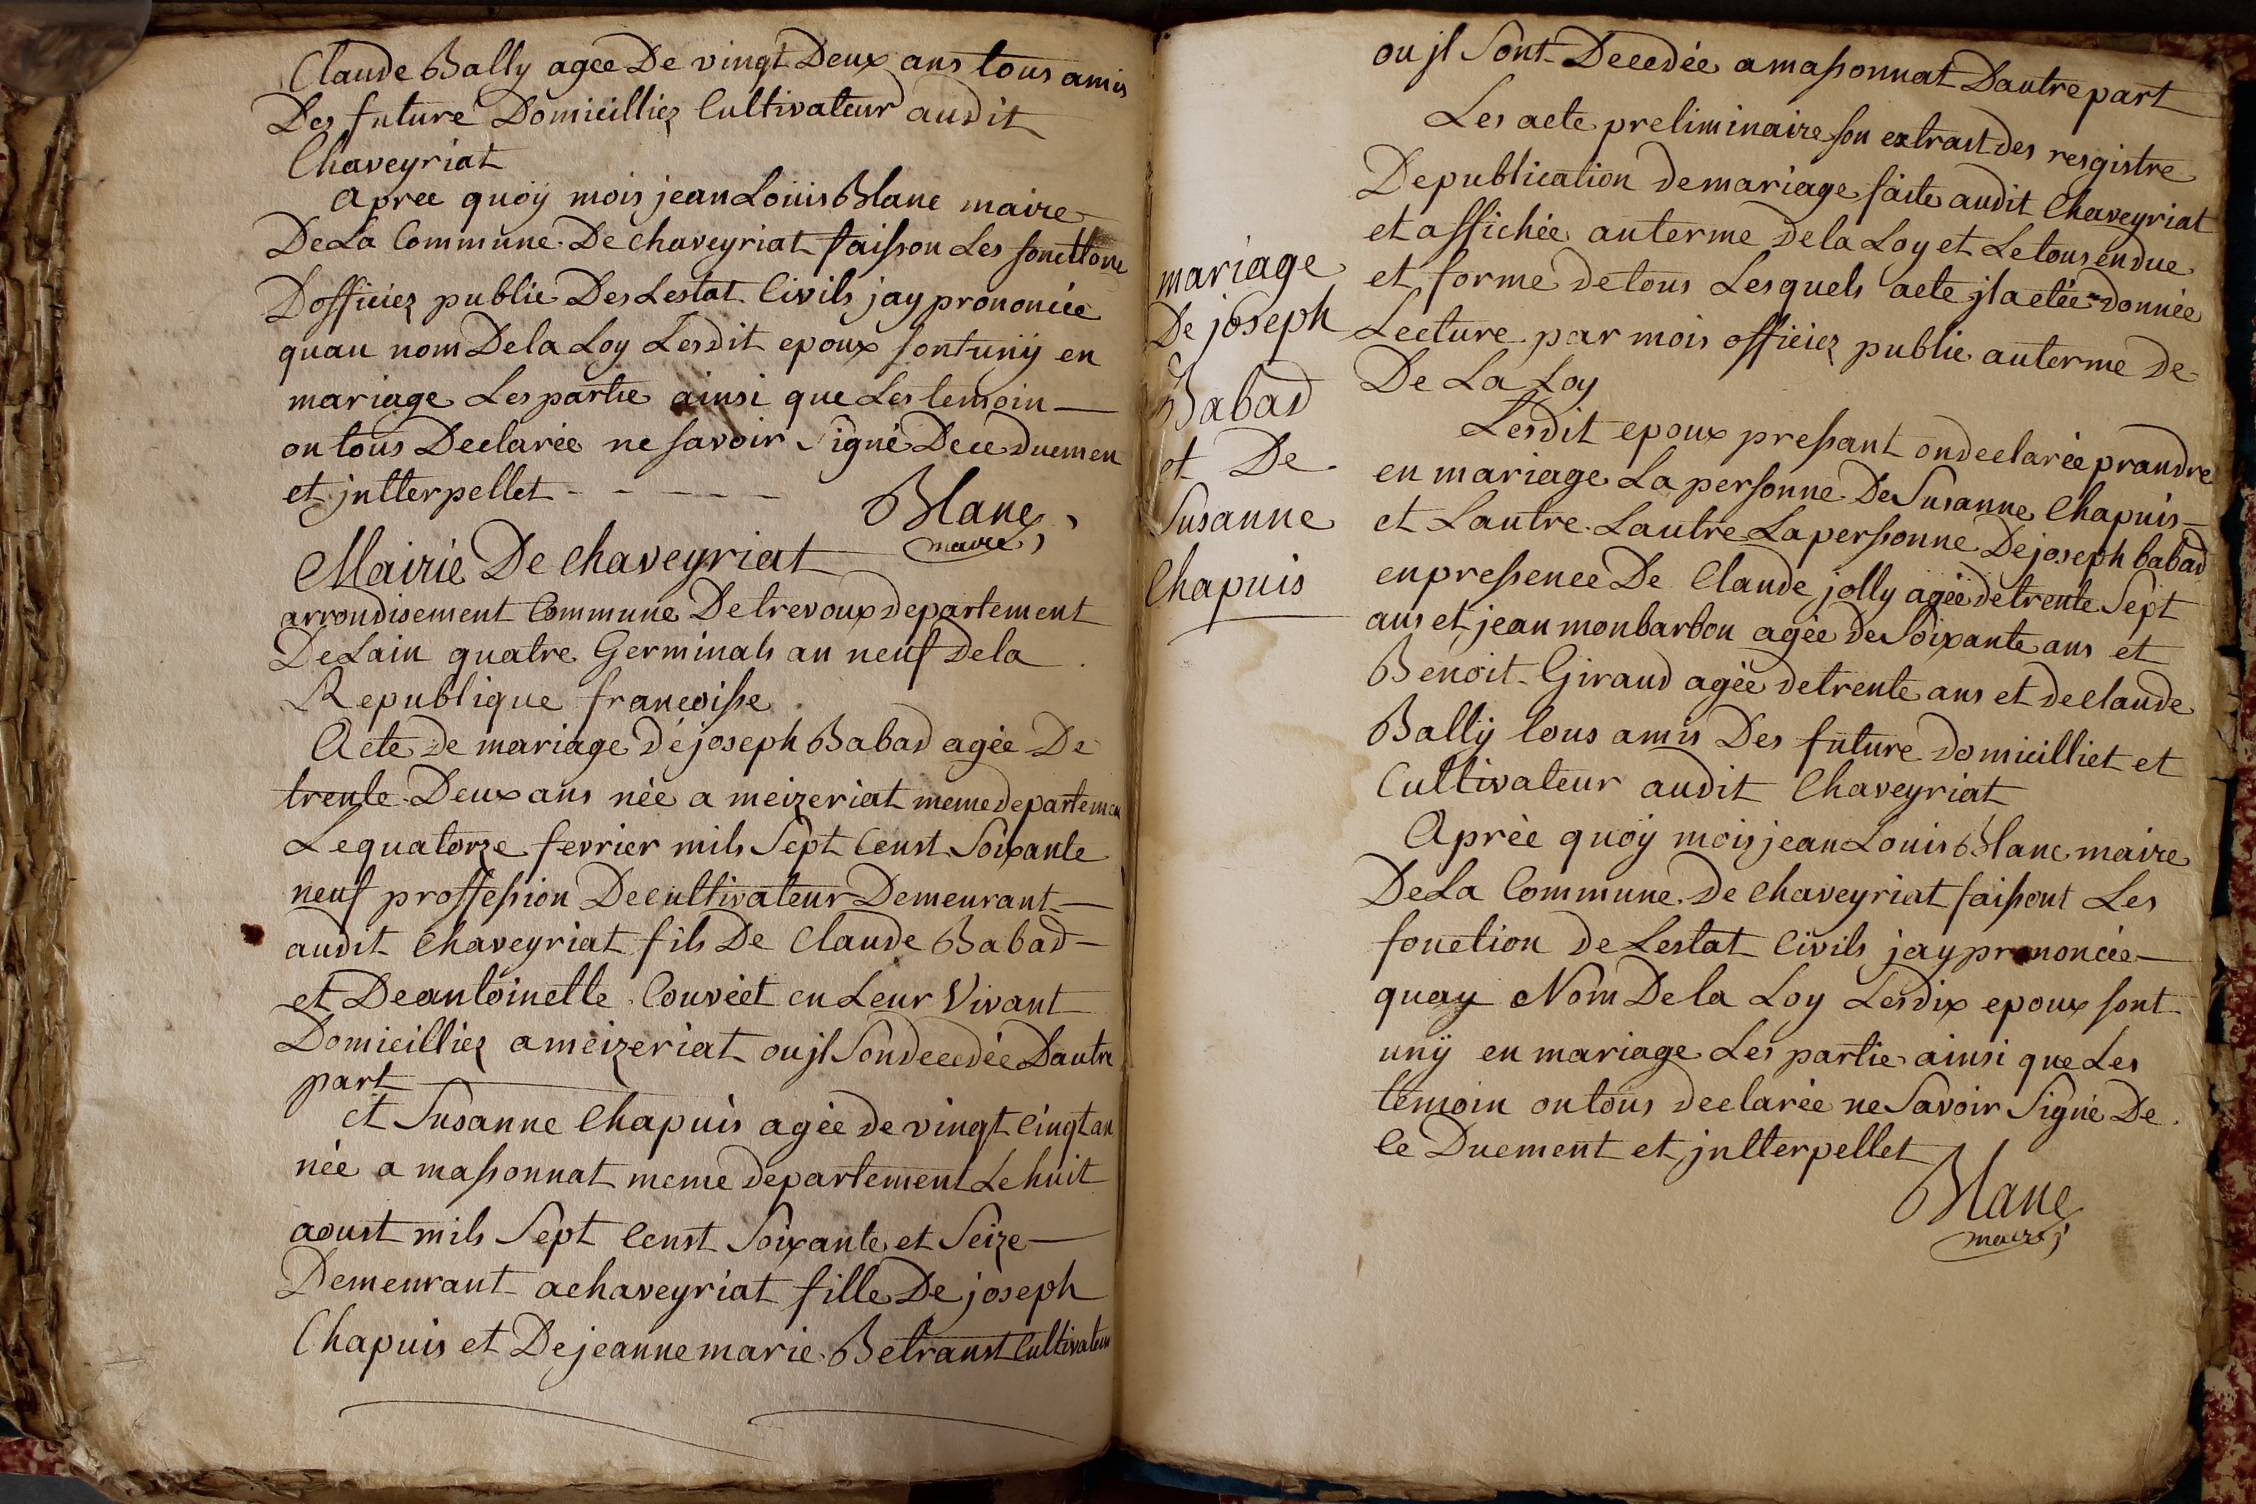 Claude Bally agee De vingt Deux ans tous amis
Des future Domicilliez Cultivateur audit
Chaveyriat
apree quoÿ mois jean Loüis Blanc maire
De La Commune De chaveyriat faisson Les fonctione
Dofficiez public Des Lestat Civils jay prononcée
quau nom De la Loy Lesdit epoux sont unÿ en
mariage Les partie ainsi que Les temoin
on tous Declarée ne savoir Signé De ce Duemen
et jntterpellet
Blanc
maire
Mairie De chaveyriat
arrondisement Commune De trevoux departement
De Lain quatre Germinals an neuf De la
Republique francoisse
Acte de mariage dé joseph Babad agée De
trente Deux ans née a meizeriat meme departemen
Le quatorze fevrier mils Sept Censt Soixante
neuf proffession De cultivateur Demeurant
audit Chaveyriat fils De Claude Babad
et De antoinette Couvéet en Leur Vivant
Domicilliez a meizeriat ou jl Son decedée Dautre
part
et Susanne Chapuis agée de vingt Cingt an
née a massonnat meme departement Le huit
aoust mils Sept Censt Soixante et Seize
Demeurant a chaveyriat fille De joseph
Chapuis et De jeanne marie Betranst Cultivateur
mariage
De joseph
Babad
et De
Susanne
Chapuis
ou jl Sont Decedée a massonnat Dautre part
Les acte preliminaire son extrait des resgistre
De publication de mariage faite audit Chaveyriat
et affichée au terme de la Loy et Le tous en due
et forme de tous Lesquels acte jl a etée donnée
Lecture par mois officiez public au terme de
De La Loy
Lesdit epoux pressant on declarée prandre
en mariage La personne De Susanne Chapuis
et Lautre Lautre La perssonne De joseph babad
en pressence De Claude jolly agée de trente Sept
ans et jean monbarbon agée de Soixante ans et
Benoit Giraud agée de trente ans et de claude
Ballÿ tous amis Des future domicilliet et
Cultivateur audit Chaveyriat
Aprée quoÿ mois jean Louis Blanc maire
De La Commune De chaveyriat faissont Les
fonction de Lestat Civils jay prononcée
quay Nom De la Loy Lesdix epoux sont
unÿ en mariage Les partie ainsi que Les
temoin on tous declarée ne Savoir Signé De
Ce Duement et jntterpellet
Blanc
maire